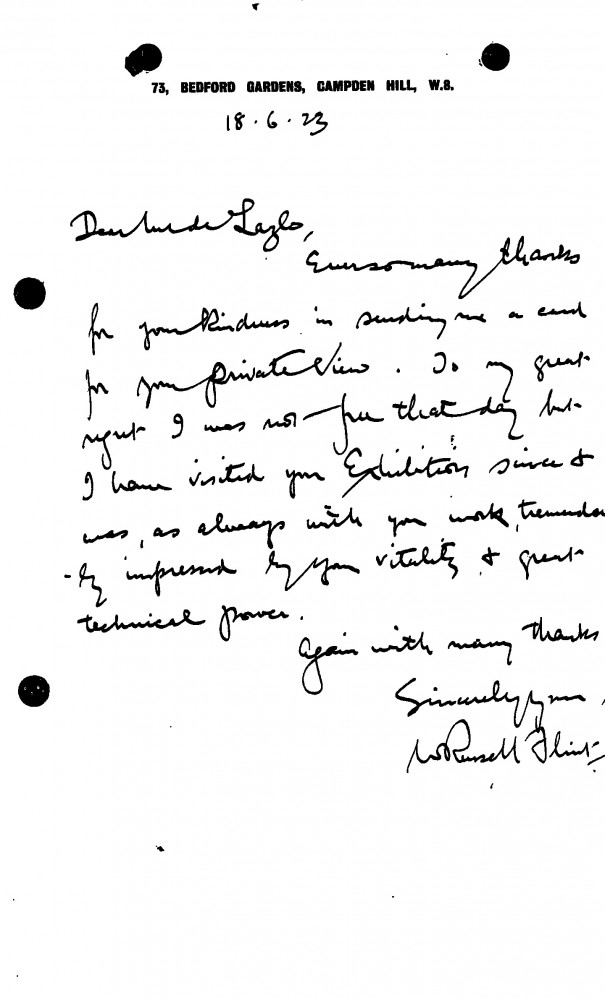 73, BEDFORD GARDENS, CAMPDEN HILL, W.8.
18.6.23
Dear Mr de Lazlo,
Ever so many thanks
for your kindness in sending me a card
for your Private View. To my great
regret I was not free that day but
I have visited your Exhibition since &
was, as always with your work, tremendous
-ly impressed by your vitality & great
technical power.
Again with many thanks
Sincerely yours,
W Russell Flint